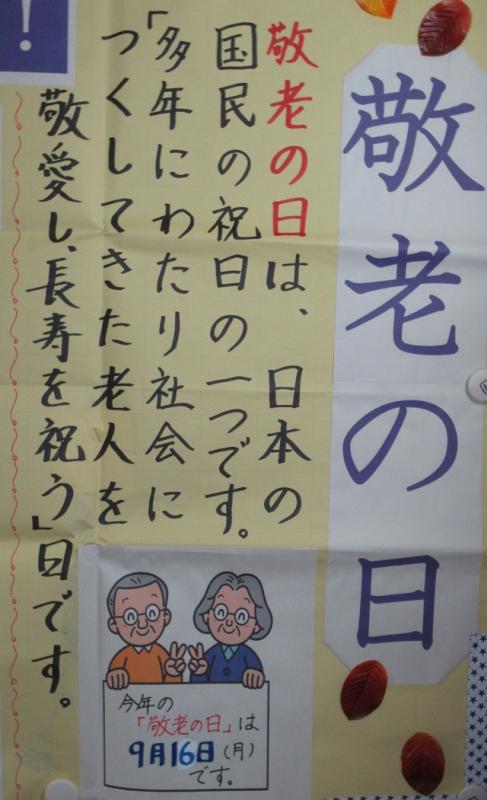 敬老の日
敬老の日は、日本の
国民の祝日の一つです。
「多年にわたり社会に
つくしてきた老人を
敬愛し、長寿を祝う」日です。
!
今年の
「敬老の日」は
9月16日(月)
です。